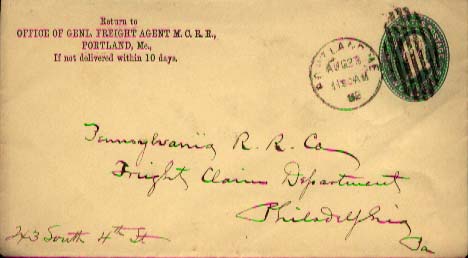 Return to
OFFICE OF GENL. FREIGHT AGENT M. C. R. R.,
PORTLAND, Me.,
If not delivered within 10 days.
PORTLAND ME
AUG 23
1130AM
92
Pennsylvania R. R. Co
Freight Claim Department
Philadelphia
Pa
243 South 4th St